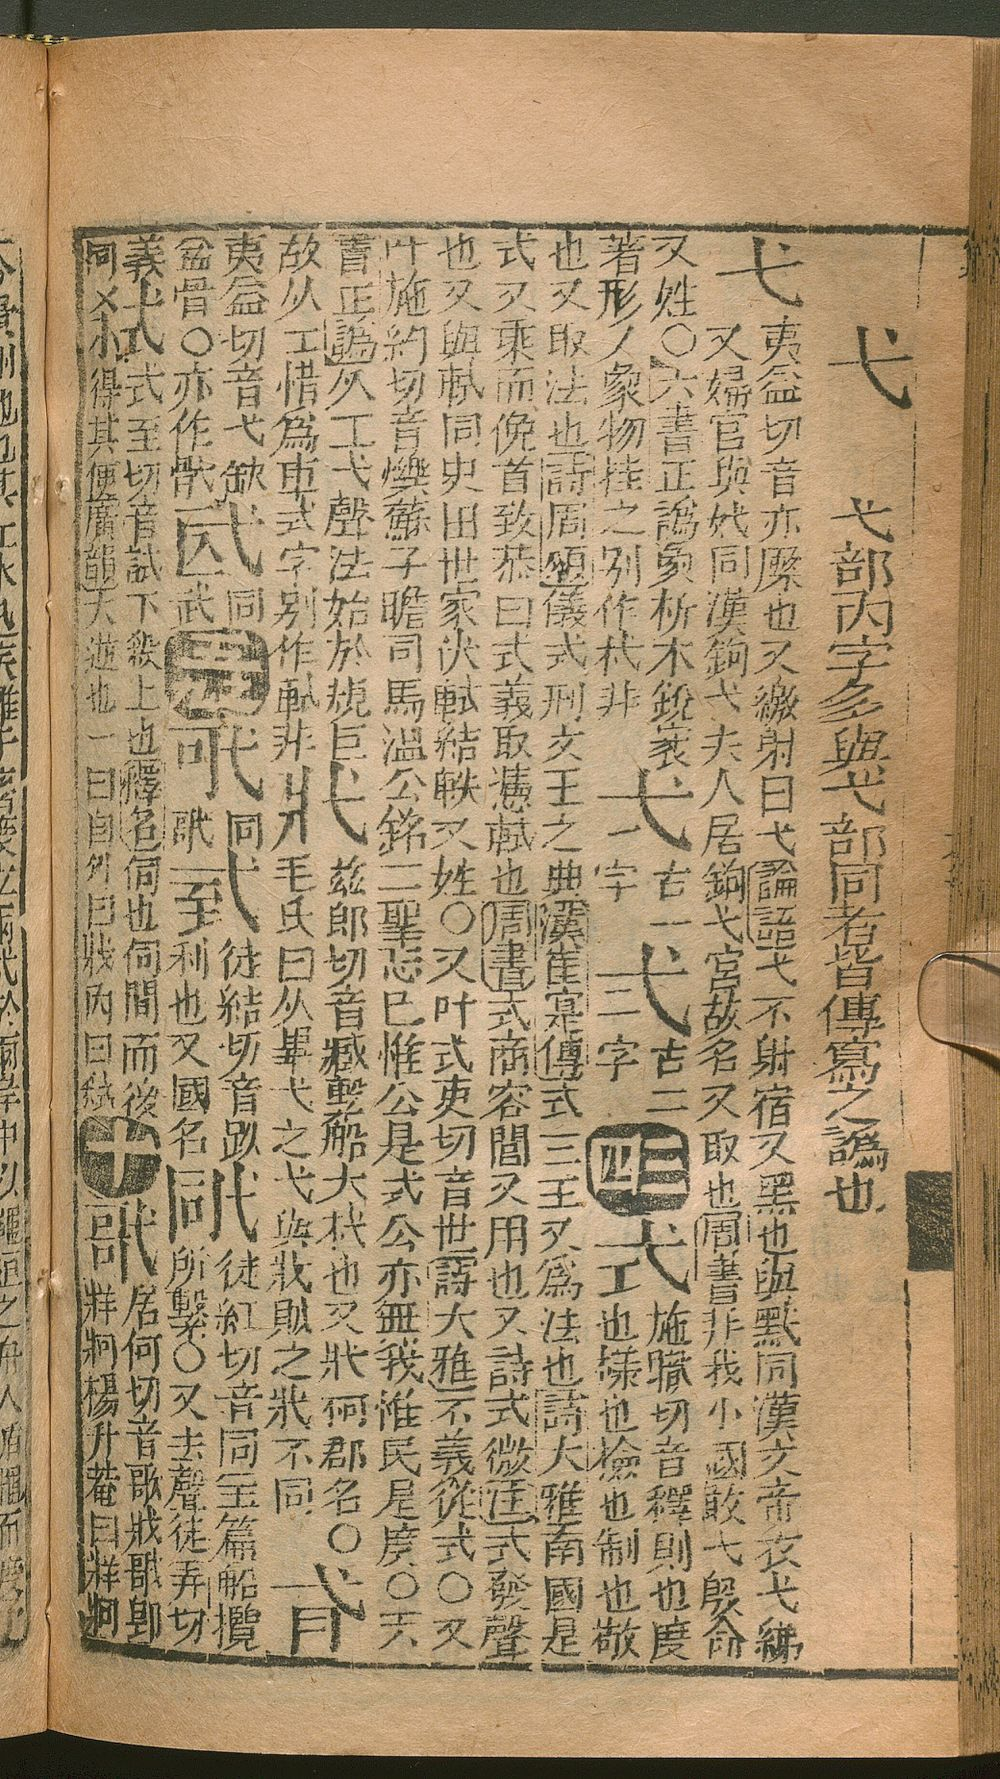 弋　弋部內字多與戈部同者皆傳寫之譌也
弋　夷益切音亦橜也又繳射曰弋論語弋不射宿又黑也與黓同漢文帝衣弋綈
又婦官與妷同漢鉤弋夫人居鉤弋宮故名又取也周書非我小國敢弋殷命
又姓〇六書正譌象析木銳衺　弌　古一　弍　古二　三畫　式　施職切音釋則也度
著形丿象物挂之別作杙非　一字　二字　四　也樣也檢也制也敬
也又取法也詩周頌儀式刑文王之典漢崔寔傳式三王又為法也詩大雅南國是
式又乘而俛首致恭曰式義取憑軾也周書式商容閭又用也又詩式微注式發聲
也又與軾同史田世家決軾結軼又姓〇又叶式吏切音世詩大雅不義從式〇又
叶施約切音爍蘇子瞻司馬溫公銘二聖忘已惟公是式公亦無我惟民是度〇六
書正譌从工弋聲法始於規巨　牫　茲郎切音臧繫船大杙也又牫牁郡名〇
故从工惜為車式字別作軾非　毛氏曰从畢弋之弋與戕賊之戕不同
夷益切音弋缺　同　同　徒結切音趺　徒紅切音同玉篇船攬
盆骨〇亦作　武　歌　利也又國名　所繫〇又去聲徒弄切
義　弒　式至切音試下殺上也釋名伺也伺間而後　居何切音歌牫郡
同　得其便廣韻大逆也一曰自外曰戕內曰弒　十　牂牁楊升菴曰牂牁